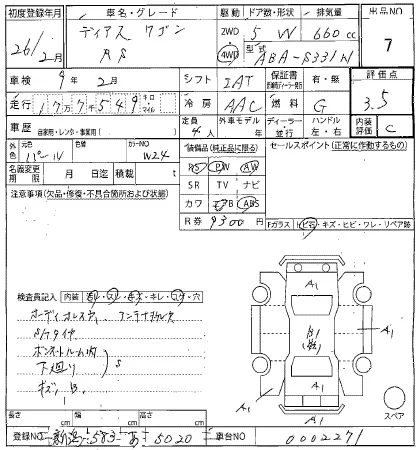 初度登録年月 車名・グレード 駆動 ドア数・形状 排気量 出品NO
26/2月 ディアス ワゴン RS 2WD 4WD 5 W 660cc 7
型式 ABA-S331N
車検 9年2月 シフト IAT 保証書 有・無 評価点
走行 177549 キロ マイル 冷房 AAC 燃料 G 3.5
車歴 自家用・レンタ・事業用( ) 定員 4人 外車モデル 年 ディーラー・並行 ハンドル 左・右 内装評価 C
外色 元色 パール 色替 カラーNO W24 装備品(純正品に限る) セールスポイント(正常に作動するもの)
名義変更期限 月 日迄 積載 t PS PW AW
注意事項(欠品・修復・不具合箇所および状態) SR TV ナビ
カワ エアB ABS
R券 9300 Fガラス ヒビ石・キズ・ヒビ・ワレ・リペア跡
検査員記入 内装
オーディオレス アンテナ
S/タイヤ
ボンネットルーム内
下廻り } S
キズ
A1
A1
A1
A1
A1
A1
スペア
長さ cm 幅 cm 高さ cm
登録NO 新潟 583 あ 5020 車台NO 0002271